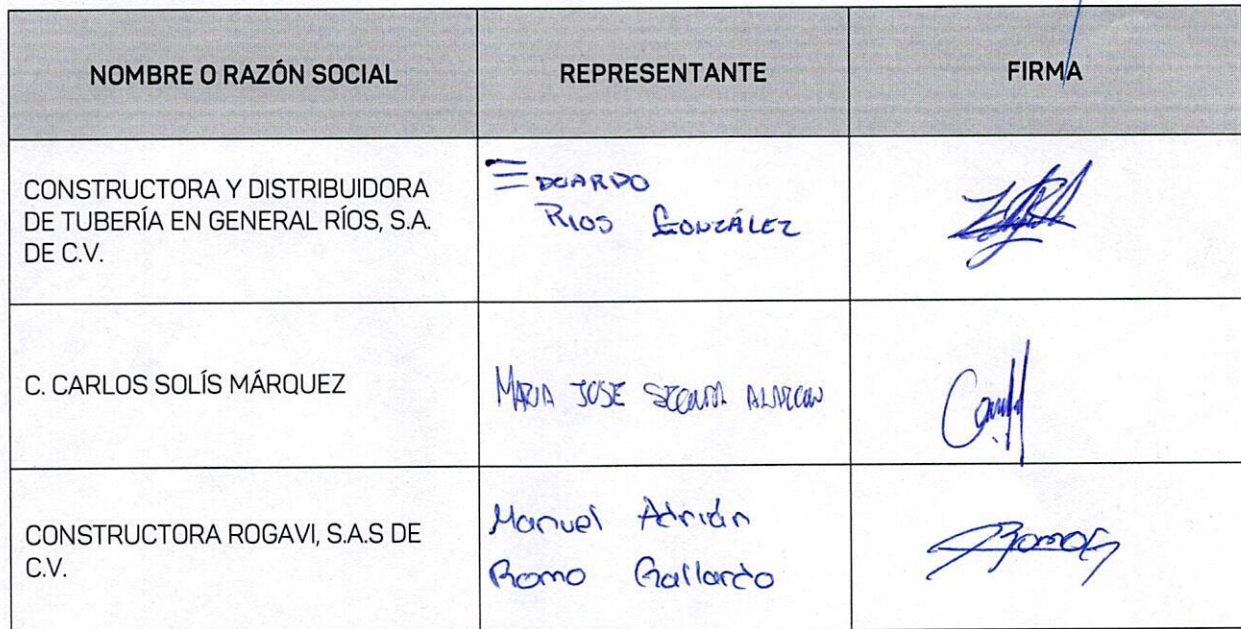 NOMBRE O RAZÓN SOCIAL
REPRESENTANTE
FIRMA
CONSTRUCTORA Y DISTRIBUIDORA
DE TUBERÍA EN GENERAL RÍOS, S.A.
DE C.V.
EDUARDO
RIOS GONZÁLEZ
C. CARLOS SOLÍS MÁRQUEZ
MARIA JOSE ALARCON
CONSTRUCTORA ROGAVI, S.A.S DE
C.V.
Manuel Adrián
Romo Gallardo